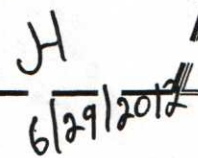 JH
6/29/2012